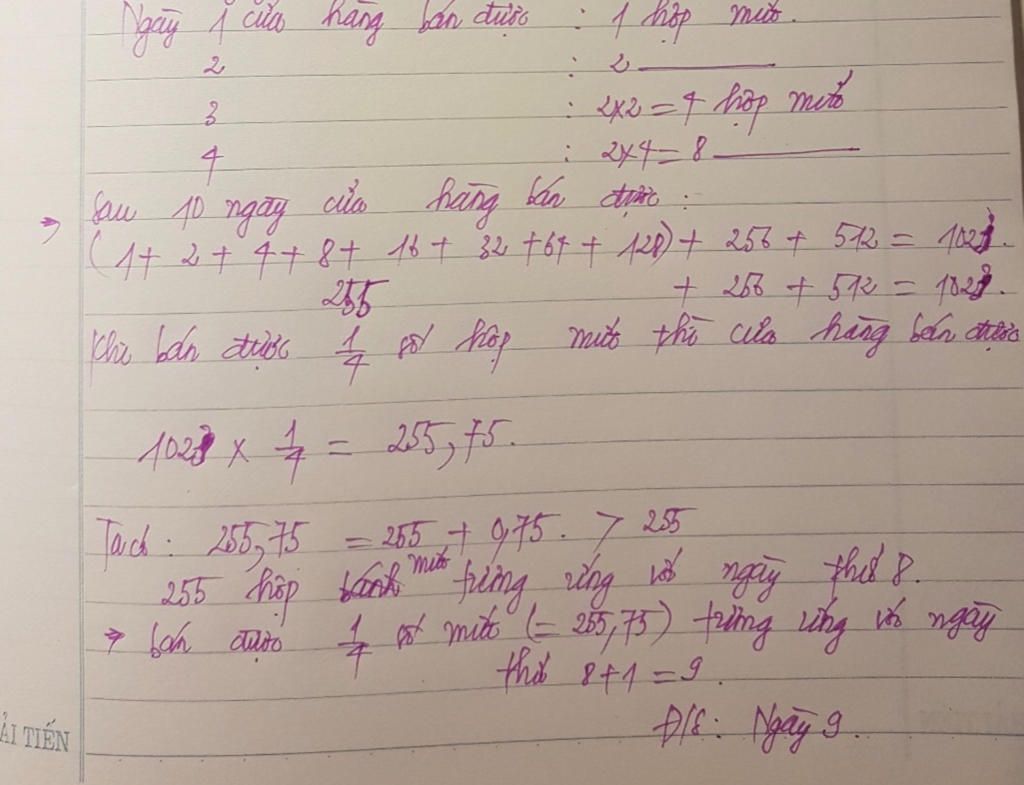 Ngày 1 cửa hàng bán được : 1 hộp mứt.
2 : 2 ———
3 : 2×2 = 4 hộp mứt
4 : 2×4 = 8 ———
→ Sau 10 ngày cửa hàng bán được :
(1 + 2 + 4 + 8 + 16 + 32 + 64 + 128) + 256 + 512 = 1023.
255 + 256 + 512 = 1023.
Khi bán được 1/4 số hộp mứt thì cửa hàng bán được
1023 × 1/4 = 255,75.
Tách : 255,75 = 255 + 0,75. > 255
255 hộp mứt tương ứng với ngày thứ 8.
→ bán được 1/4 số mứt (= 255,75) tương ứng với ngày
thứ 8+1 = 9.
Đ/S : Ngày 9.
ẢI TIẾN